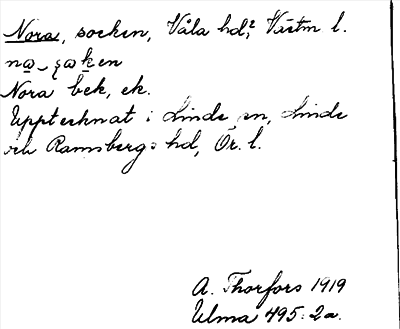 Nora, socken, Våla hd, Västm l.
Nora bek, ek.
Upptecknat i Linde sn, Linde
och Ramsbergs hd, Ör. l.
A. Thorfors 1919
Ulma 495:2a.